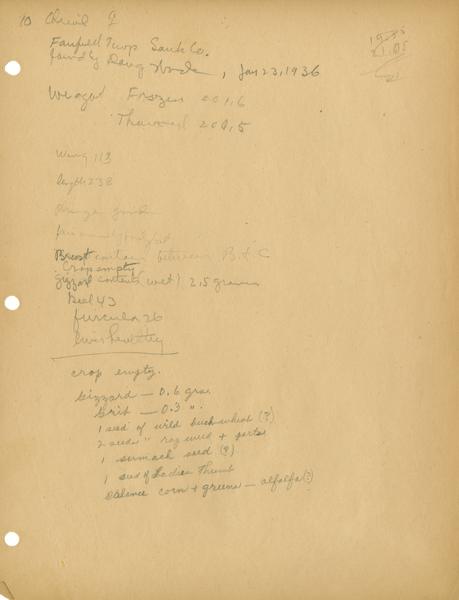 10
♀
19.35
21.05
Twp Sauk Co.
found by Doug Wade, Jan 23, 1936
Weight Frozen 201.6
Thawed 200.5
Wing 113
length 238
Breast contour between B & C
Crop empty
gizzard contents (wet) 2.5 grams
Keel 43
furcula 26
liver healthy
crop empty.
Gizzard — 0.6 gra.
Grit — 0.3 ".
1 seed of wild buckwheat (?)
2 seeds " ragweed + parts
1 sumach seed (?)
1 seed of Ladies Thumb
Balance corn + greens — alfalfa (?)